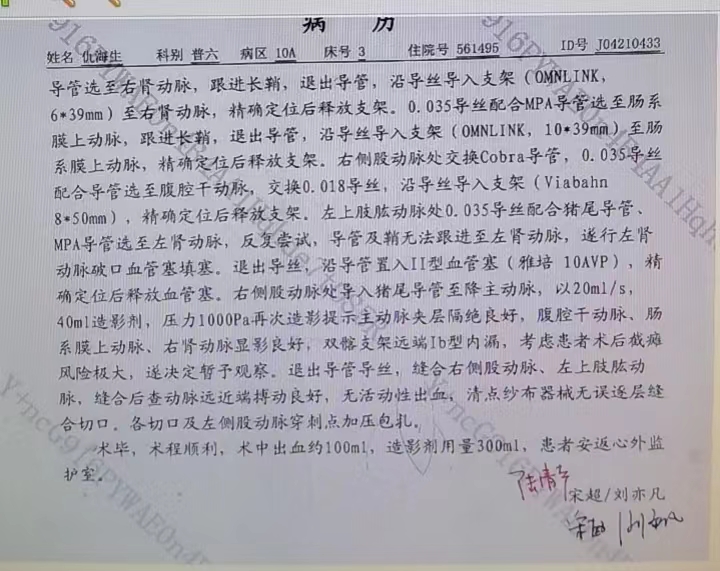 病 历
姓名 仇海生 科别 普六 病区 10A 床号 3 住院号 561495 ID号 J04210433
导管选至右肾动脉，跟进长鞘，退出导管，沿导丝导入支架（OMNLINK，
6*39mm）至右肾动脉，精确定位后释放支架。0.035导丝配合MPA导管选至肠系
膜上动脉，跟进长鞘，退出导管，沿导丝导入支架（OMNLINK，10*39mm）至肠
系膜上动脉，精确定位后释放支架。右侧股动脉处交换Cobra导管，0.035导丝
配合导管选至腹腔干动脉，交换0.018导丝，沿导丝导入支架（Viabahn
8*50mm），精确定位后释放支架。左上肢肱动脉处0.035导丝配合猪尾导管、
MPA导管选至左肾动脉，反复尝试，导管及鞘无法跟进至左肾动脉，遂行左肾
动脉破口血管塞填塞。退出导丝，沿导管置入II型血管塞（雅培 10AVP），精
确定位后释放血管塞。右侧股动脉处导入猪尾导管至降主动脉，以20ml/s，
40ml造影剂，压力1000Pa再次造影提示主动脉夹层隔绝良好，腹腔干动脉、肠
系膜上动脉、右肾动脉显影良好，双髂支架远端Ib型内漏，考虑患者术后截瘫
风险极大，遂决定暂予观察。退出导管导丝，缝合右侧股动脉、左上肢肱动
脉，缝合后查动脉远近端搏动良好，无活动性出血，清点纱布器械无误逐层缝
合切口。各切口及左侧股动脉穿刺点加压包扎。
术毕，术程顺利，术中出血约100ml，造影剂用量300ml，患者安返心外监
护室。
宋超/刘亦凡